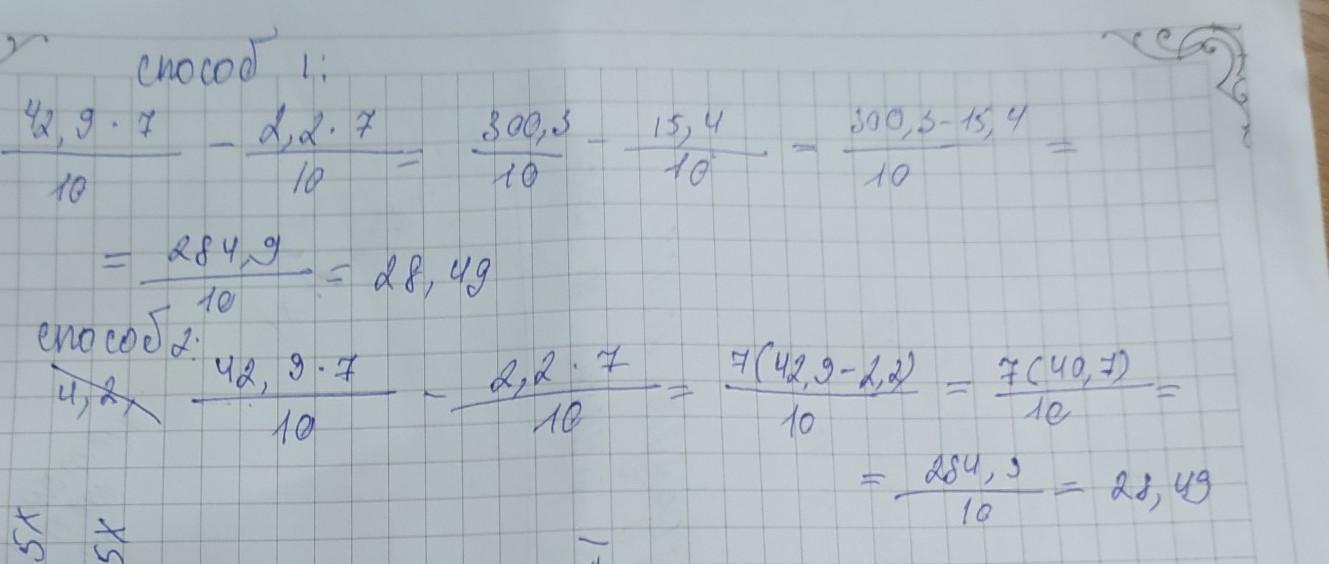 способ 1:
42,9·7/10 - 2,2·7/10 = 300,3/10 - 15,4/10 = 300,3-15,4/10 =
= 284,9/10 = 28,49
способ 2:
4,2, 42,9·7/10 - 2,2·7/10 = 7(42,9-2,2)/10 = 7(40,7)/10 =
= 284,9/10 = 28,49
5x
5x